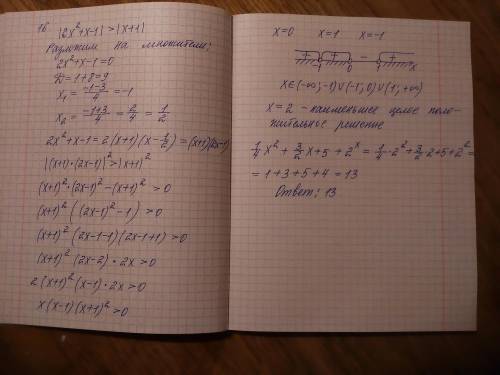 16 |2x²+x-1|>|x+1|
Разложим на множители:
2x²+x-1=0
D=1+8=9
x₁ = (-1-3)/4 = -1
x₂ = (-1+3)/4 = 2/4 = 1/2
2x²+x-1=2(x+1)(x-1/2)=(x+1)(2x-1)
|(x+1)·(2x-1)|²>|x+1|²
(x+1)²·(2x-1)²-(x+1)²>0
(x+1)²((2x-1)²-1)>0
(x+1)²(2x-1-1)(2x-1+1)>0
(x+1)²(2x-2)·2x>0
2(x+1)²(x-1)·2x>0
x(x-1)(x+1)²>0
x=0 x=1 x=-1
+ + - +
-1 0 1 x
x∈(-∞;-1)∪(-1;0)∪(1;+∞)
x=2 - наименьшее целое поло-
жительное решение
1/4x²+3/2x+5+2ˣ=1/4·2²+3/2·2+5+2²=
=1+3+5+4=13
Ответ: 13